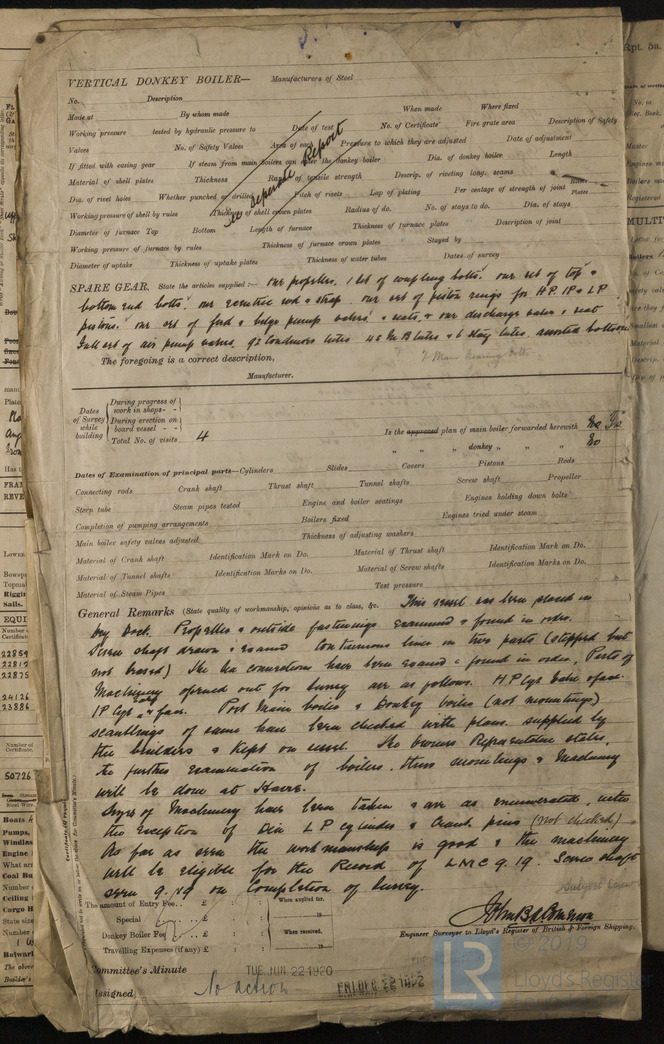 VERTICAL DONKEY BOILER— Manufacturers of Steel
No. Description
Made at By whom made When made Where fixed
Working pressure tested by hydraulic pressure to Date of test No. of Certificate Fire grate area Description of Safety
Valves No. of Safety Valves Area of each Pressure to which they are adjusted Date of adjustment
If fitted with easing gear If steam from main boilers can enter the donkey boiler Dia. of donkey boiler Length
Material of shell plates Thickness Range of tensile strength Descrip. of riveting long. seams
Dia. of rivet holes Whether punched or drilled Pitch of rivets Lap of plating Per centage of strength of joint Rivets Plates
Working pressure of shell by rules Thickness of shell crown plates Radius of do. No. of stays to do. Dia. of stays
Diameter of furnace Top Bottom Length of furnace Thickness of furnace plates Description of joint
Working pressure of furnace by rules Thickness of furnace crown plates Stayed by
Diameter of uptake Thickness of uptake plates Thickness of water tubes Dates of survey
See Separate Report
SPARE GEAR. State the articles supplied:— one propeller. 1 set of coupling bolts. one set of top &
bottom end bolts. one eccentric rod & strap. one set of piston rings for H.P. IP & LP
pistons. one set of feed & bilge pump valves & seats, & one discharge valve & seat
Full set of air pump valves. 92 Condenser tubes 45 M B tubes & 6 stay tubes. assorted bolts
The foregoing is a correct description, 2 Main bearing bolts
Manufacturer.
Dates of Survey while building
During progress of work in shops - -
During erection on board vessel - -
Total No. of visits 4
Is the approved plan of main boiler forwarded herewith No
" " " donkey " " " No
Dates of Examination of principal parts—Cylinders Slides Covers Pistons Rods
Connecting rods Crank shaft Thrust shaft Tunnel shafts Screw shaft Propeller
Stern tube Steam pipes tested Engine and boiler seatings Engines holding down bolts
Completion of pumping arrangements Boilers fixed Engines tried under steam
Main boiler safety valves adjusted Thickness of adjusting washers
Material of Crank shaft Identification Mark on Do. Material of Thrust shaft Identification Mark on Do.
Material of Tunnel shafts Identification Marks on Do. Material of Screw shafts Identification Marks on Do.
Material of Steam Pipes Test pressure
General Remarks (State quality of workmanship, opinions as to class, &c. This vessel has been placed in
dry Dock. Propeller & outside fastenings examined & found in order.
Screw shaft drawn & examd Continuous liner in two parts (stepped but
not brased) The sea connections have been examd & found in order, Parts of
Machinery opened out for survey are as follows. H P Cyl valve & face.
IP Cyl & face. Port Main boiler & Donkey boiler (not mountings)
scantlings of same have been checked with plans supplied by
the builders & kept on vessel. The owners Representative states,
the further examination of boilers, their mountings & Machinery
will be done at Havre.
Sizes of Machinery have been taken & are as enumerated, with
the exception of Dia L P cylinder & Crank pins (not checked)
As far as seen the workmanship is good & the machinery
will be eligible for the Record of LMC 9.19. Screw shaft
seen 9.19 on Completion of Survey.
The amount of Entry Fee.. £ : : When applied for,
Special .. £ : : 19
Donkey Boiler Fee .. £ : : When received,
Travelling Expenses (if any) £ : : 19
Engineer Surveyor to Lloyd's Register of British & Foreign Shipping.
Committee's Minute TUE. JUN. 22 1920
FRI. DEC. 22 1922
Assigned No action
LR
© 2019
Lloyd's Register